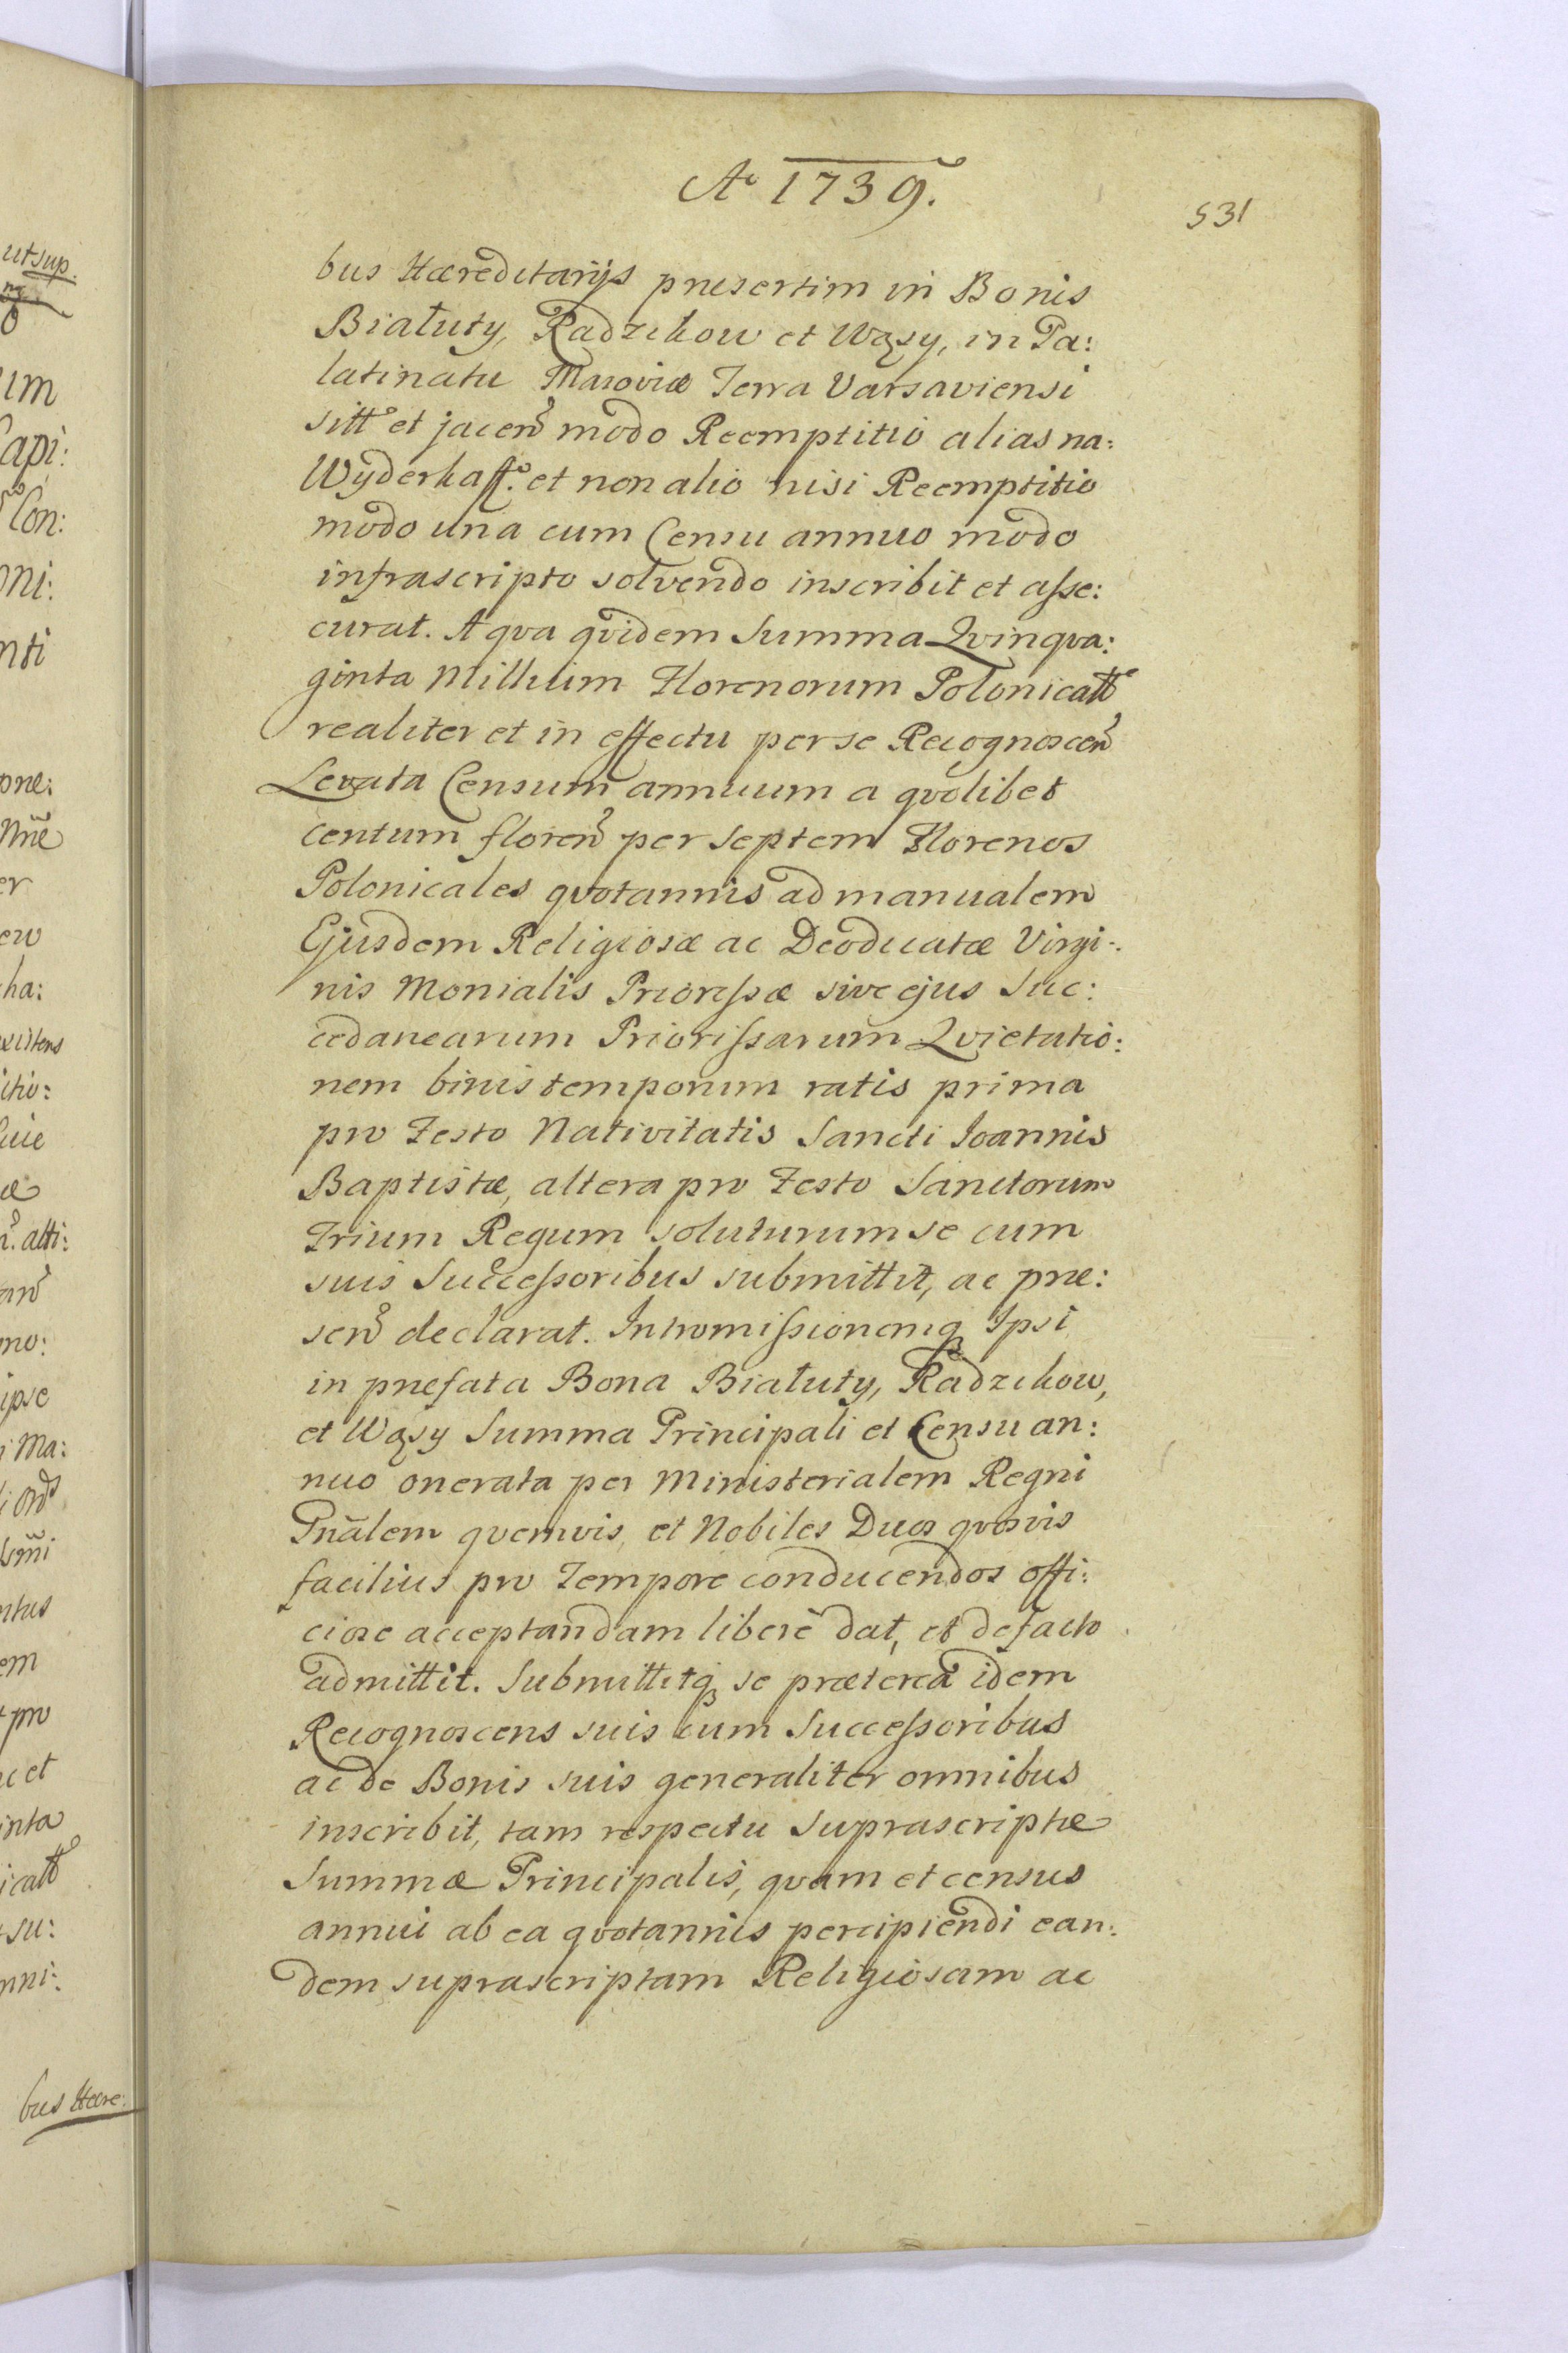 Aͦ 1739.
531
bus Hæreditarijs præsertim in Bonis
Białuty, Radzikow et Wąsy, in Pa:
latinatu Masoviæ Terra Varsaviensi
sitt° et jacen̄ modo Reemptitio alias na:
Wyderkaff. et non alio nisi Reemptitio
modo una cum Censu annuo modo
infrascripto solvendo inscribit et asse:
curat. A qva qvidem Summa Qvinqva:
ginta Millium Florenorum Polonicatt
realiter et in effectu per se Recognoscen̄
Levata Censum annuum a qvolibet
centum floren̄ per septem Florenos
Polonicales qvotannis ad manualem
Ejusdem Religiosæ ac Deodicatæ Virgi:
nis Monialis Priorissæ sive ejus Suc:
cedanearum Priorissarum Qvietatio:
nem binis temporum ratis prima
pro Festo Nativitatis Sancti Joannis
Baptistæ, altera pro Festo Sanctorum
Trium Regum soluturum se cum
suis Successoribus submittit, ac præ:
sen̄ declarat. Intromissionemq, Ipsi
in præfata Bona Białuty, Radzikow,
et Wąsy Summa Principali et Censu an:
nuo onerata per Ministerialem Regni
Gn̄alem qvemvis, et Nobiles Duos qvosvis
facilius pro Tempore conducendos offi:
ciose acceptandam liberè dat, et defacto
admittit. Submittitq, se prætereà idem
Recognoscens suis cum Successoribus
ac de Bonis suis generaliter omnibus
inscribit, tam respectu Suprascriptæ
Summæ Principalis, qvam et census
annui ab ea qvotannis percipiendi ean:
dem suprascriptam Religiosam ac
ut sup.
um
Capi:
Con:
oni:
nti
er
ew
cha:
itio:
æ
alti:
mo:
ipse
Ma:
ntus
em
pro
c et
inta
icatt
su:
nni:
bus Hære: